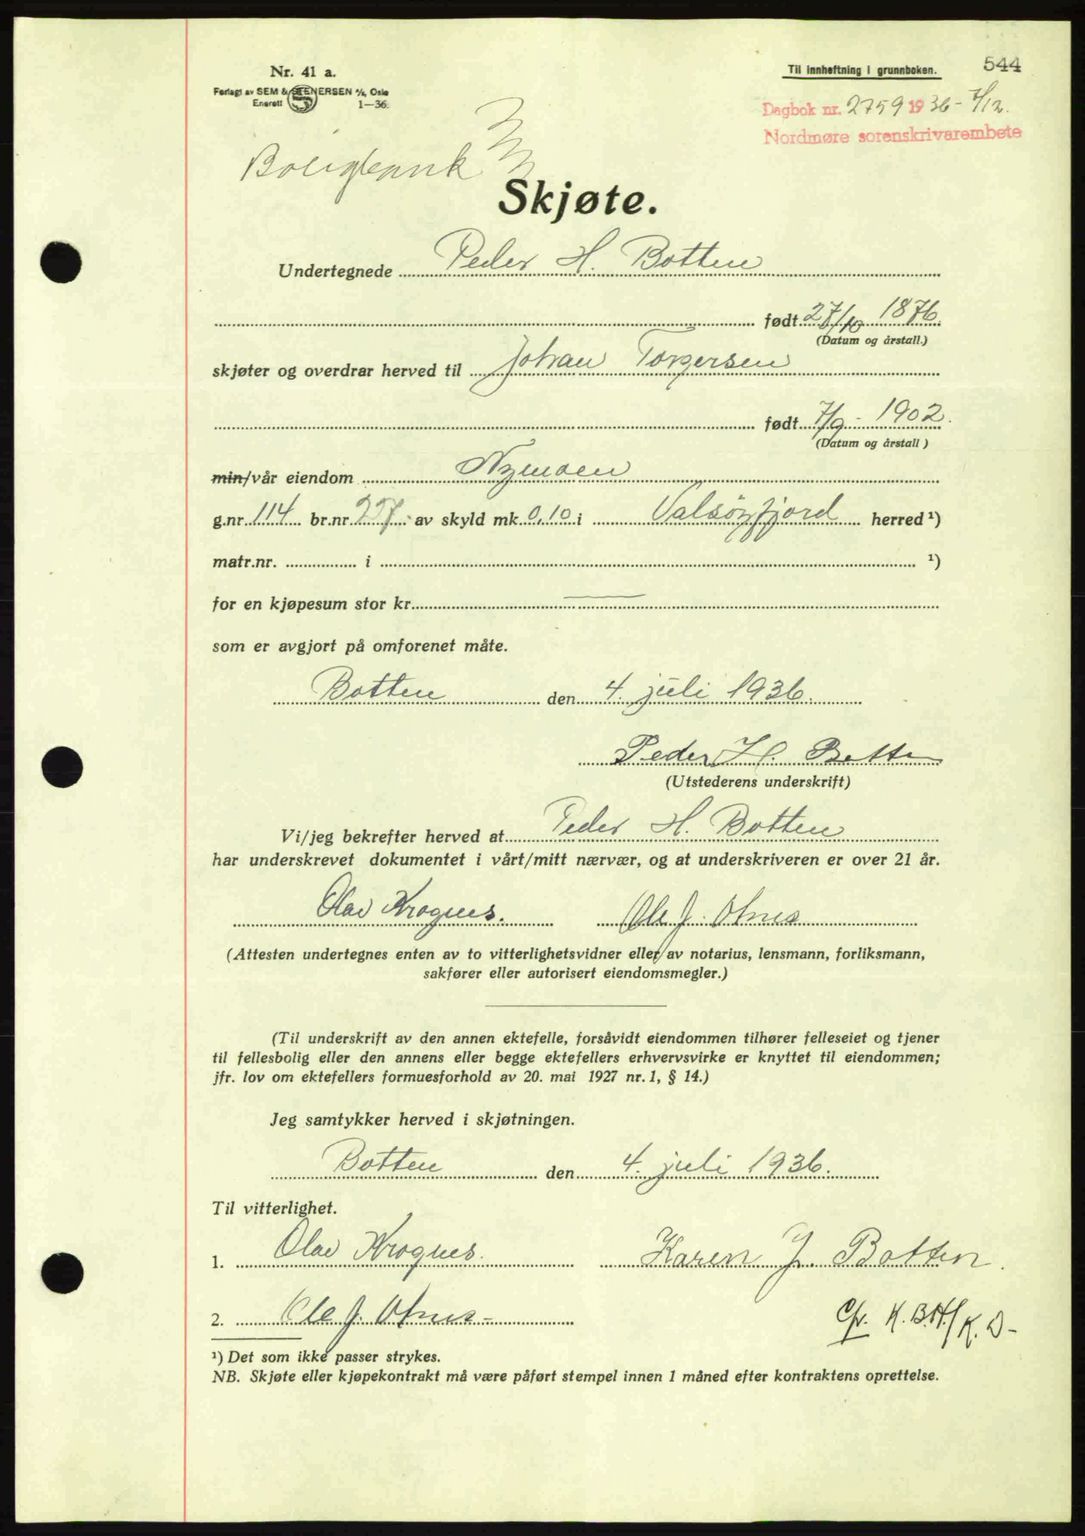 Nr. 41 a.
Forlagt av SEM & STENERSEN A/S, Oslo
Enerett 1—36.
Til innheftning i grunnboken. 544
Dagbok nr. 2759 1936 - 7/12.
Nordmøre sorenskrivarembete
Boligbank
Skjøte.
Undertegnede Peder H. Botten
født 27/10 1876
(Datum og årstall.)
skjøter og overdrar herved til Johan Torgersen
født 7/9 - 1902.
(Datum og årstall)
min/vår eiendom Nymoen
g.nr. 114 br.nr. 257. av skyld mk. 0,10 i Valsøyfjord herred ¹)
matr.nr. i ¹)
for en kjøpesum stor kr. —
som er avgjort på omforenet måte.
Botten den 4. juli 1936.
Peder H. Botten
(Utstederens underskrift)
Vi/jeg bekrefter herved at Peder H. Botten
har underskrevet dokumentet i vårt/mitt nærvær, og at underskriveren er over 21 år.
Olav Krognes. Ole J.
(Attesten undertegnes enten av to vitterlighetsvidner eller av notarius, lensmann, forliksmann,
sakfører eller autorisert eiendomsmegler.)
(Til underskrift av den annen ektefelle, forsåvidt eiendommen tilhører felleseiet og tjener
til fellesbolig eller den annens eller begge ektefellers erhvervsvirke er knyttet til eiendommen;
jfr. lov om ektefellers formuesforhold av 20. mai 1927 nr. 1, § 14.)
Jeg samtykker herved i skjøtningen.
Botten den 4. juli 1936.
Til vitterlighet.
1. Olav Krognes. Karen J. Botten.
2. Ole J.
Cfr. K.B.H./K.D-
¹) Det som ikke passer strykes.
NB. Skjøte eller kjøpekontrakt må være påført stempel innen 1 måned efter kontraktens oprettelse.